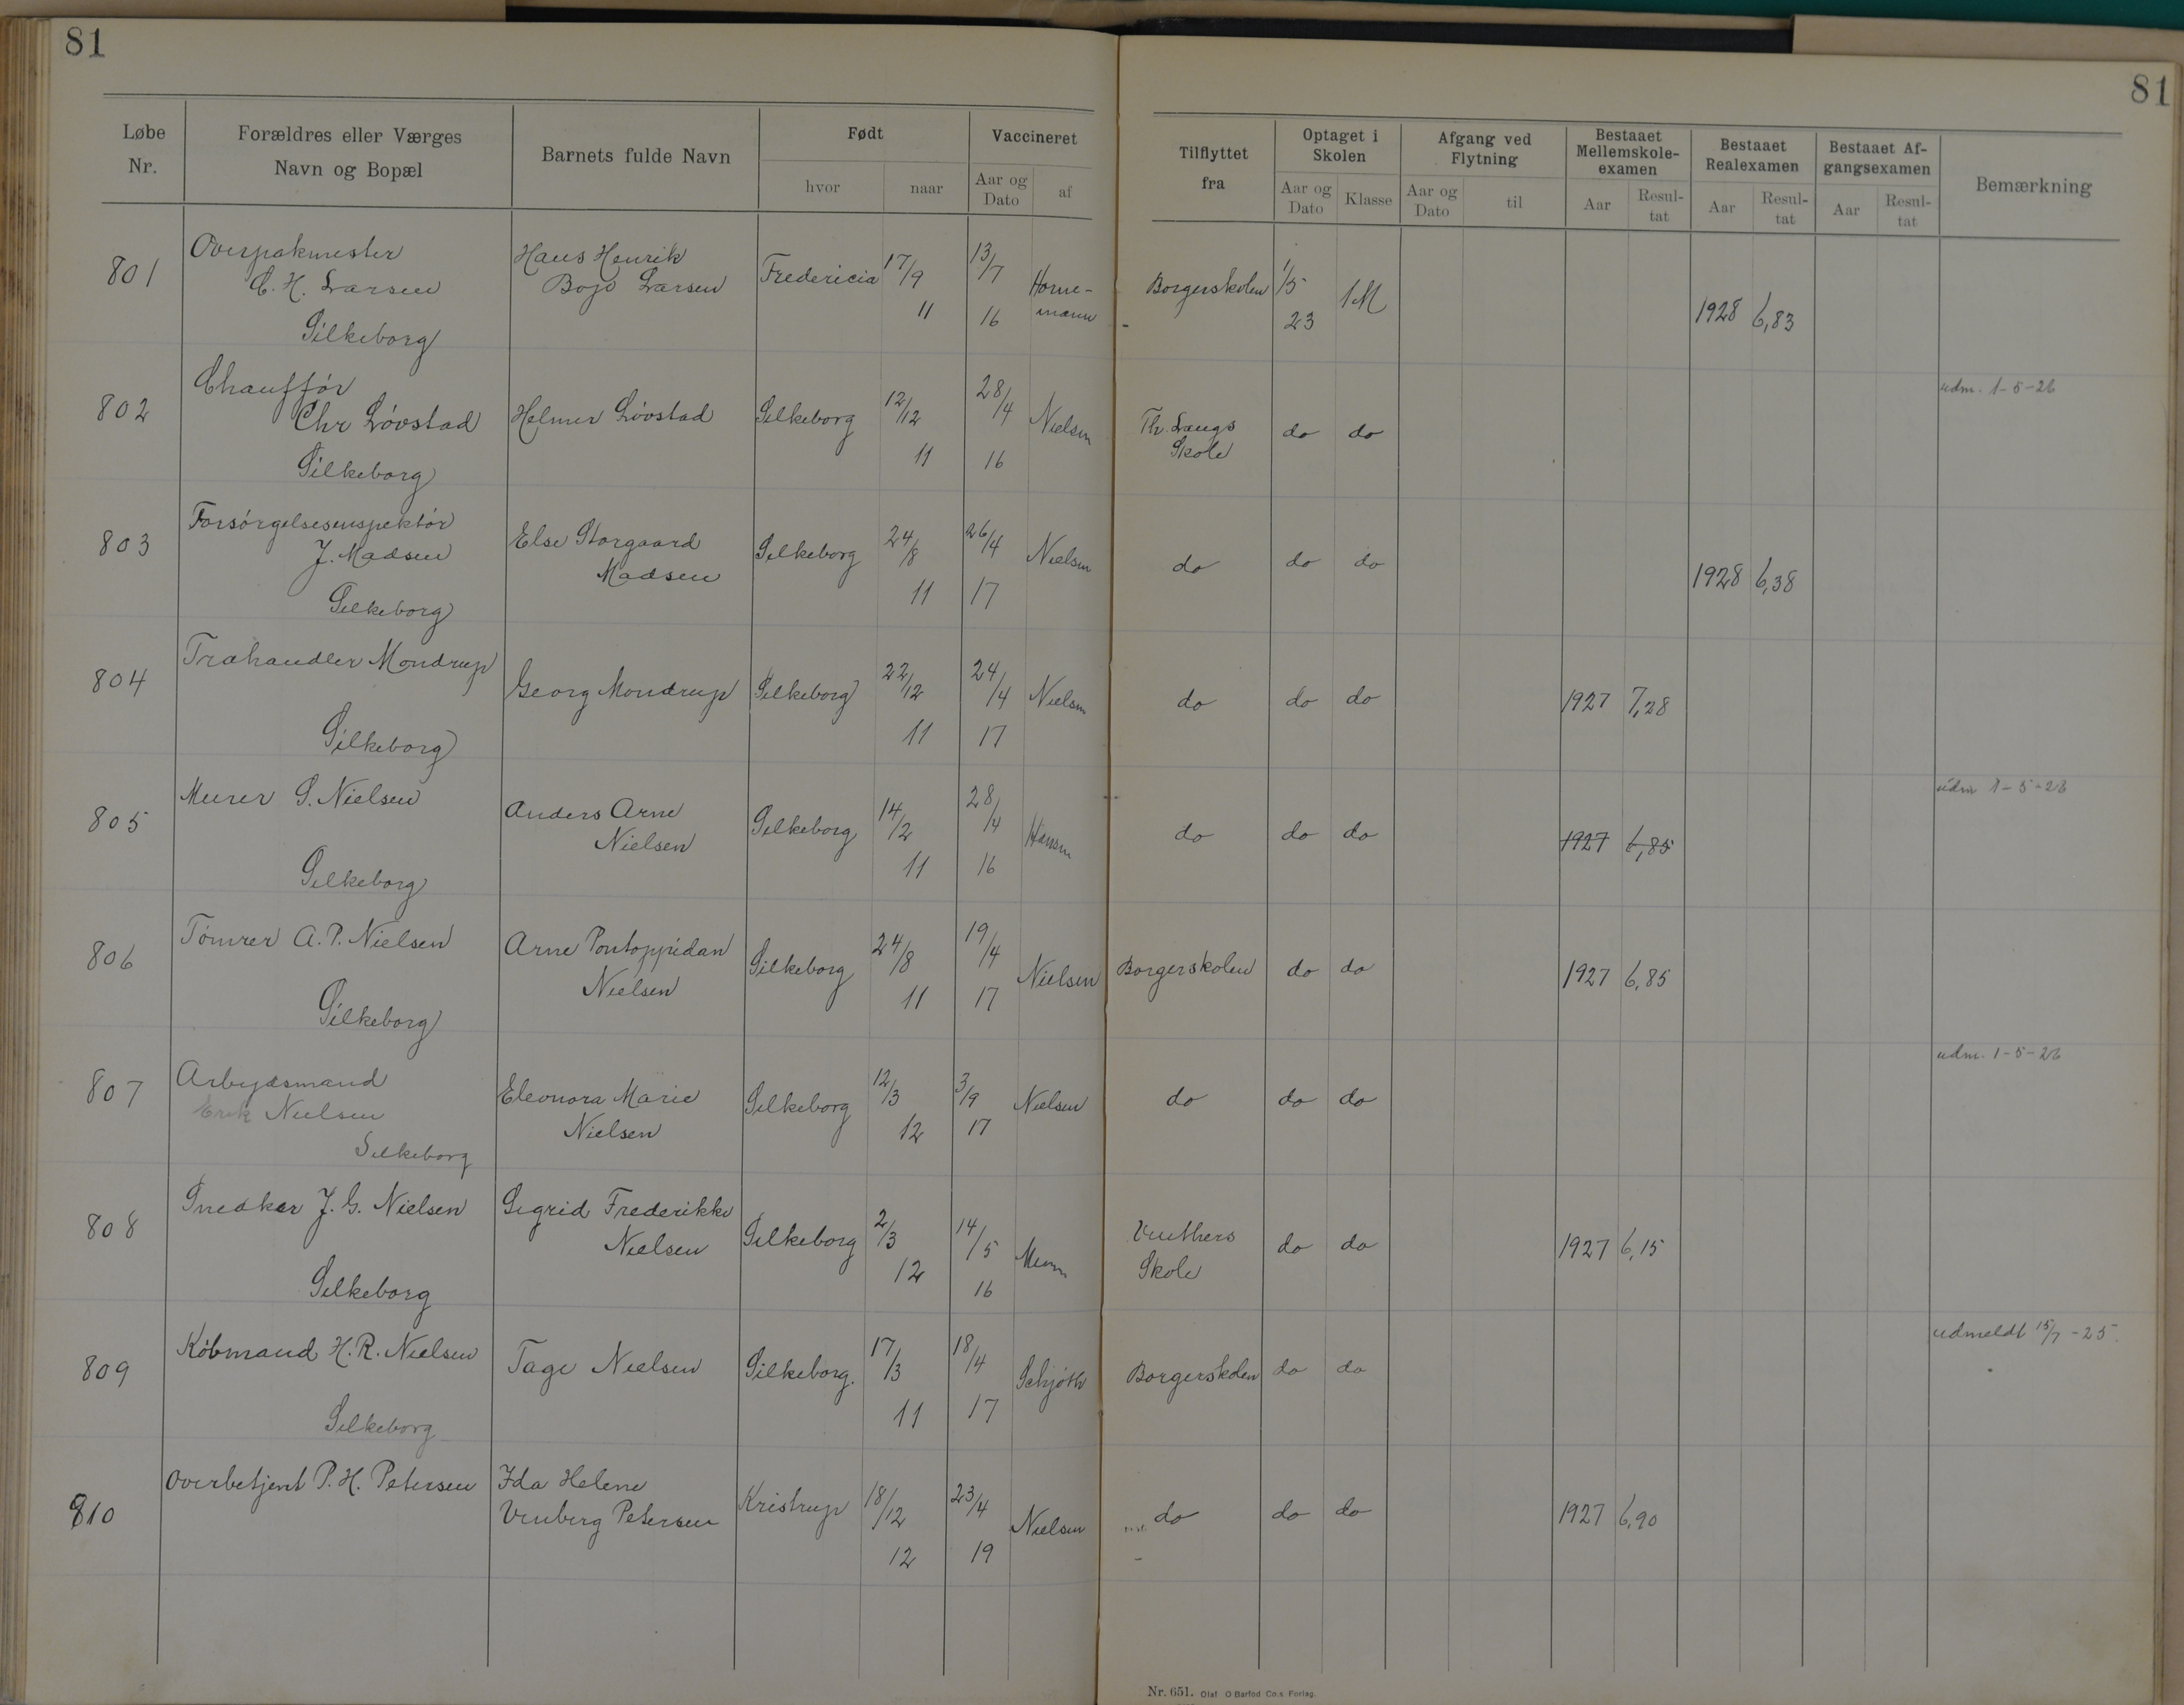 81
81
Løbe Nr.
Forældres eller Værges Navn og Bopæl
Barnets fulde Navn
Født
hvor
naar
Vaccineret
Aar og Dato
af
Tilflyttet fra
Optaget i Skolen
Aar og Dato
Klasse
Afgang ved Flytning
Aar og Dato
til
Bestaaet Mellemskole-examen
Aar
Resul-tat
Bestaaet Realexamen
Aar
Resul-tat
Bestaaet Af-gangsexamen
Aar
Resul-tat
Bemærkning
801 Overpakmester Hans Henrik Fredericia 17/9 13/7 Horne- Borgerskolen 1/5 1M 1928 6,83
C. H. Larsen Bojo Larsen 11 16 mann 23
Silkeborg
802 Chauffør 28/4 udm. 1-5-26
Chr Lövstad Helmer Lövstad Silkeborg 12/12 Nielsen Th. Langs do do
Silkeborg 11 16 Skole
803 Forsörgelsesenspektör Else Storgaard Silkeborg 24/8 26/4 Nielsen do do do 1928 6,38
J. Madsen Madsen 11 17
Silkeborg
804 Trahandler Mondrup Georg Mondrup Silkeborg 22/12 24/4 Nielsen do do do 1927 7,28
Silkeborg 11 17
805 Murer S. Nielsen Anders Arne Silkeborg 14/2 28/4 Hansen do do do 1927 6,85 udm 1-5-26
Nielsen 11 16
Silkeborg
806 Tömrer A. P. Nielsen Arne Pontoppidan Silkeborg 24/8 19/4 Nielsen Borgerskolen do do 1927 6,85
Nielsen 11 17
Silkeborg
807 Arbejdsmand Eleonora Marie Silkeborg 12/3 3/9 Nielsen do do do udm. 1-5-26
Erik Nielsen Nielsen 12 17
Silkeborg
808 Snedker J. G. Nielsen Sigrid Frederikke Silkeborg 2/3 14/5 do do 1927 6,15
Nielsen 12 16 Skole
Silkeborg
809 Købmand H. R. Nielsen Tage Nielsen Silkeborg. 17/3 18/4 Schjøth Borgerskolen do do udmeldt 15/7 -25.
Silkeborg 11 17
810 Overbetjent P. H. Petersen Ida Helene Kristrup 18/12 23/4 Nielsen do do do 1927 6,90
Venberg Petersen 12 19
Nr. 651. Olaf O Barfod Co:s Forlag.